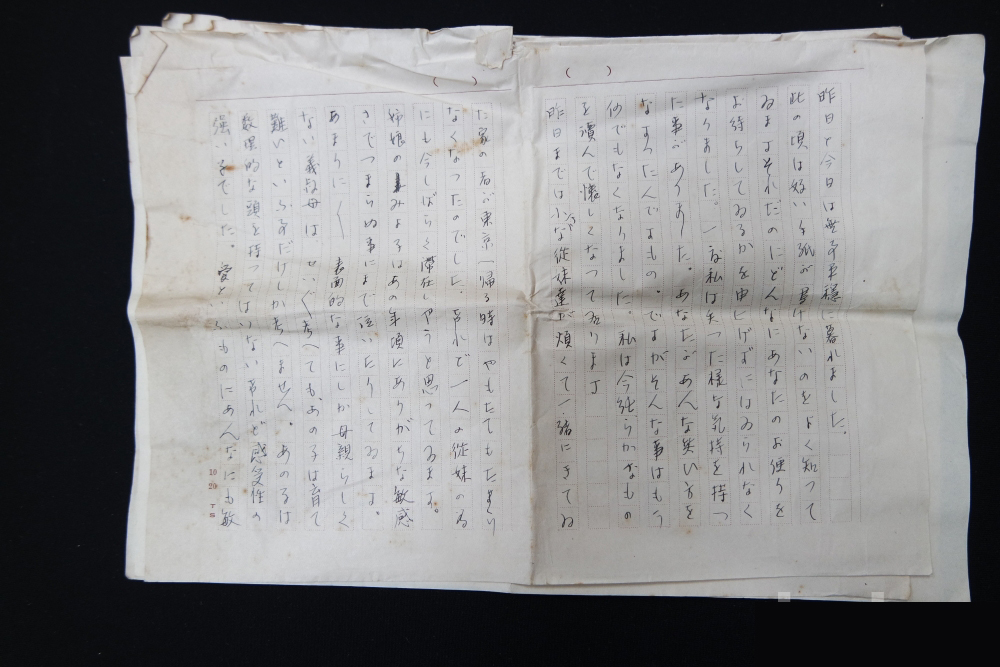 昨日と今日は無事平穏に暮れました。
此の頃は好い手紙が書けないのをよく知つて
ゐますそれだのにどんなにあなたのお便りを
お待ちしてゐるかを申上げずにはゐられなく
なりました。一寸私は失つた様な気持を持つ
た事がありました。あなたがあんな笑い方を
なすつたんですもの。ですがそんな事はもう
何でもなくなりました。私は今純らかなもの
を讀んで懐しくなつて居ります
昨日までは小さな従妹達が煩くて一緒にきてゐ
た家の者が東京へ帰る時はやもたてもたまら
なくなつたのでした、それで一人の従妹のゐ
にも今しばらく滞在しやうと思つてゐます。
姉娘のみよるはあの年頃にありがちな敏感
さでつまらぬ事にまで泣いたりしてゐます。
あまりに〱 表面的な事にしか母親らしく
ない義叔母は、せいぐ考へても、あの子は育て
難いといふ事だけしか考へません。あの子は
数理的な頭を持つてはいないけれど感受性の
強い子でした。愛といふものにあんなにも敏
10 20